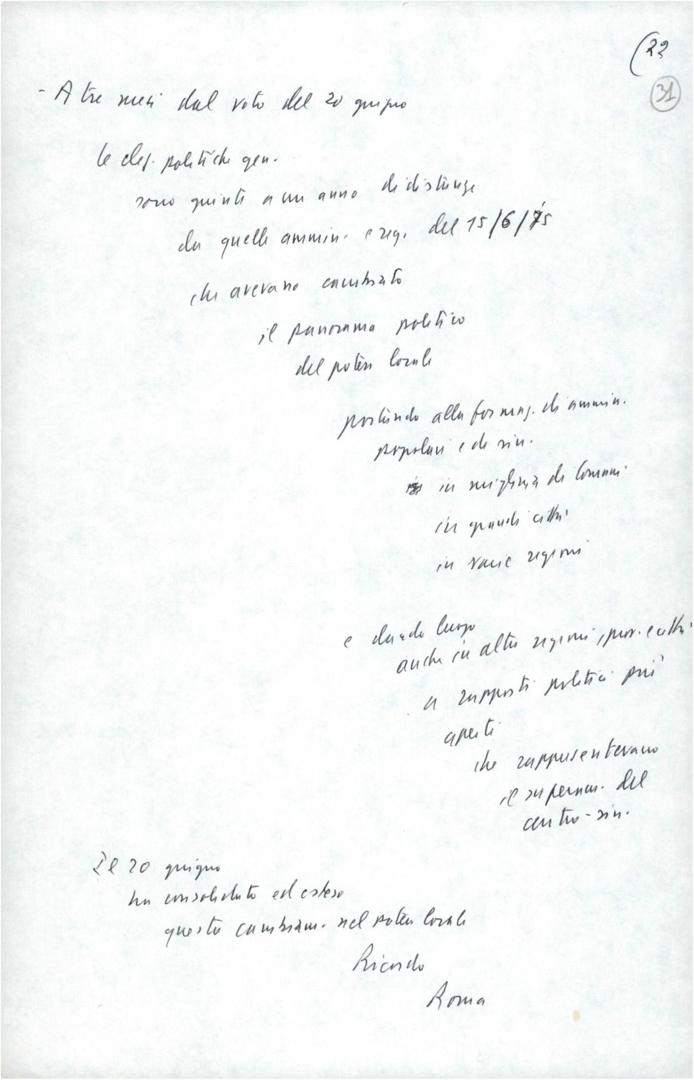 (22
31
- A tre mesi dal voto del 20 giugno
le elez. politiche gen.
sono giunte a un anno di distanza
da quelle ammin. e reg. del 15/6/75
che avevano cambiato
il panorama politico
del potere locale
portando alla formaz. di ammin.
popolari e di sin.
in migliaia di Comuni
in grandi città
in varie regioni
e dando luogo
anche in altre regioni, prov. e città
a rapporti politici più
aperti
che rappresentavano
il superam. del
centro-sin.
Il 20 giugno
ha consolidato ed esteso
questo cambiam. nel potere locale
Ricordo
Roma